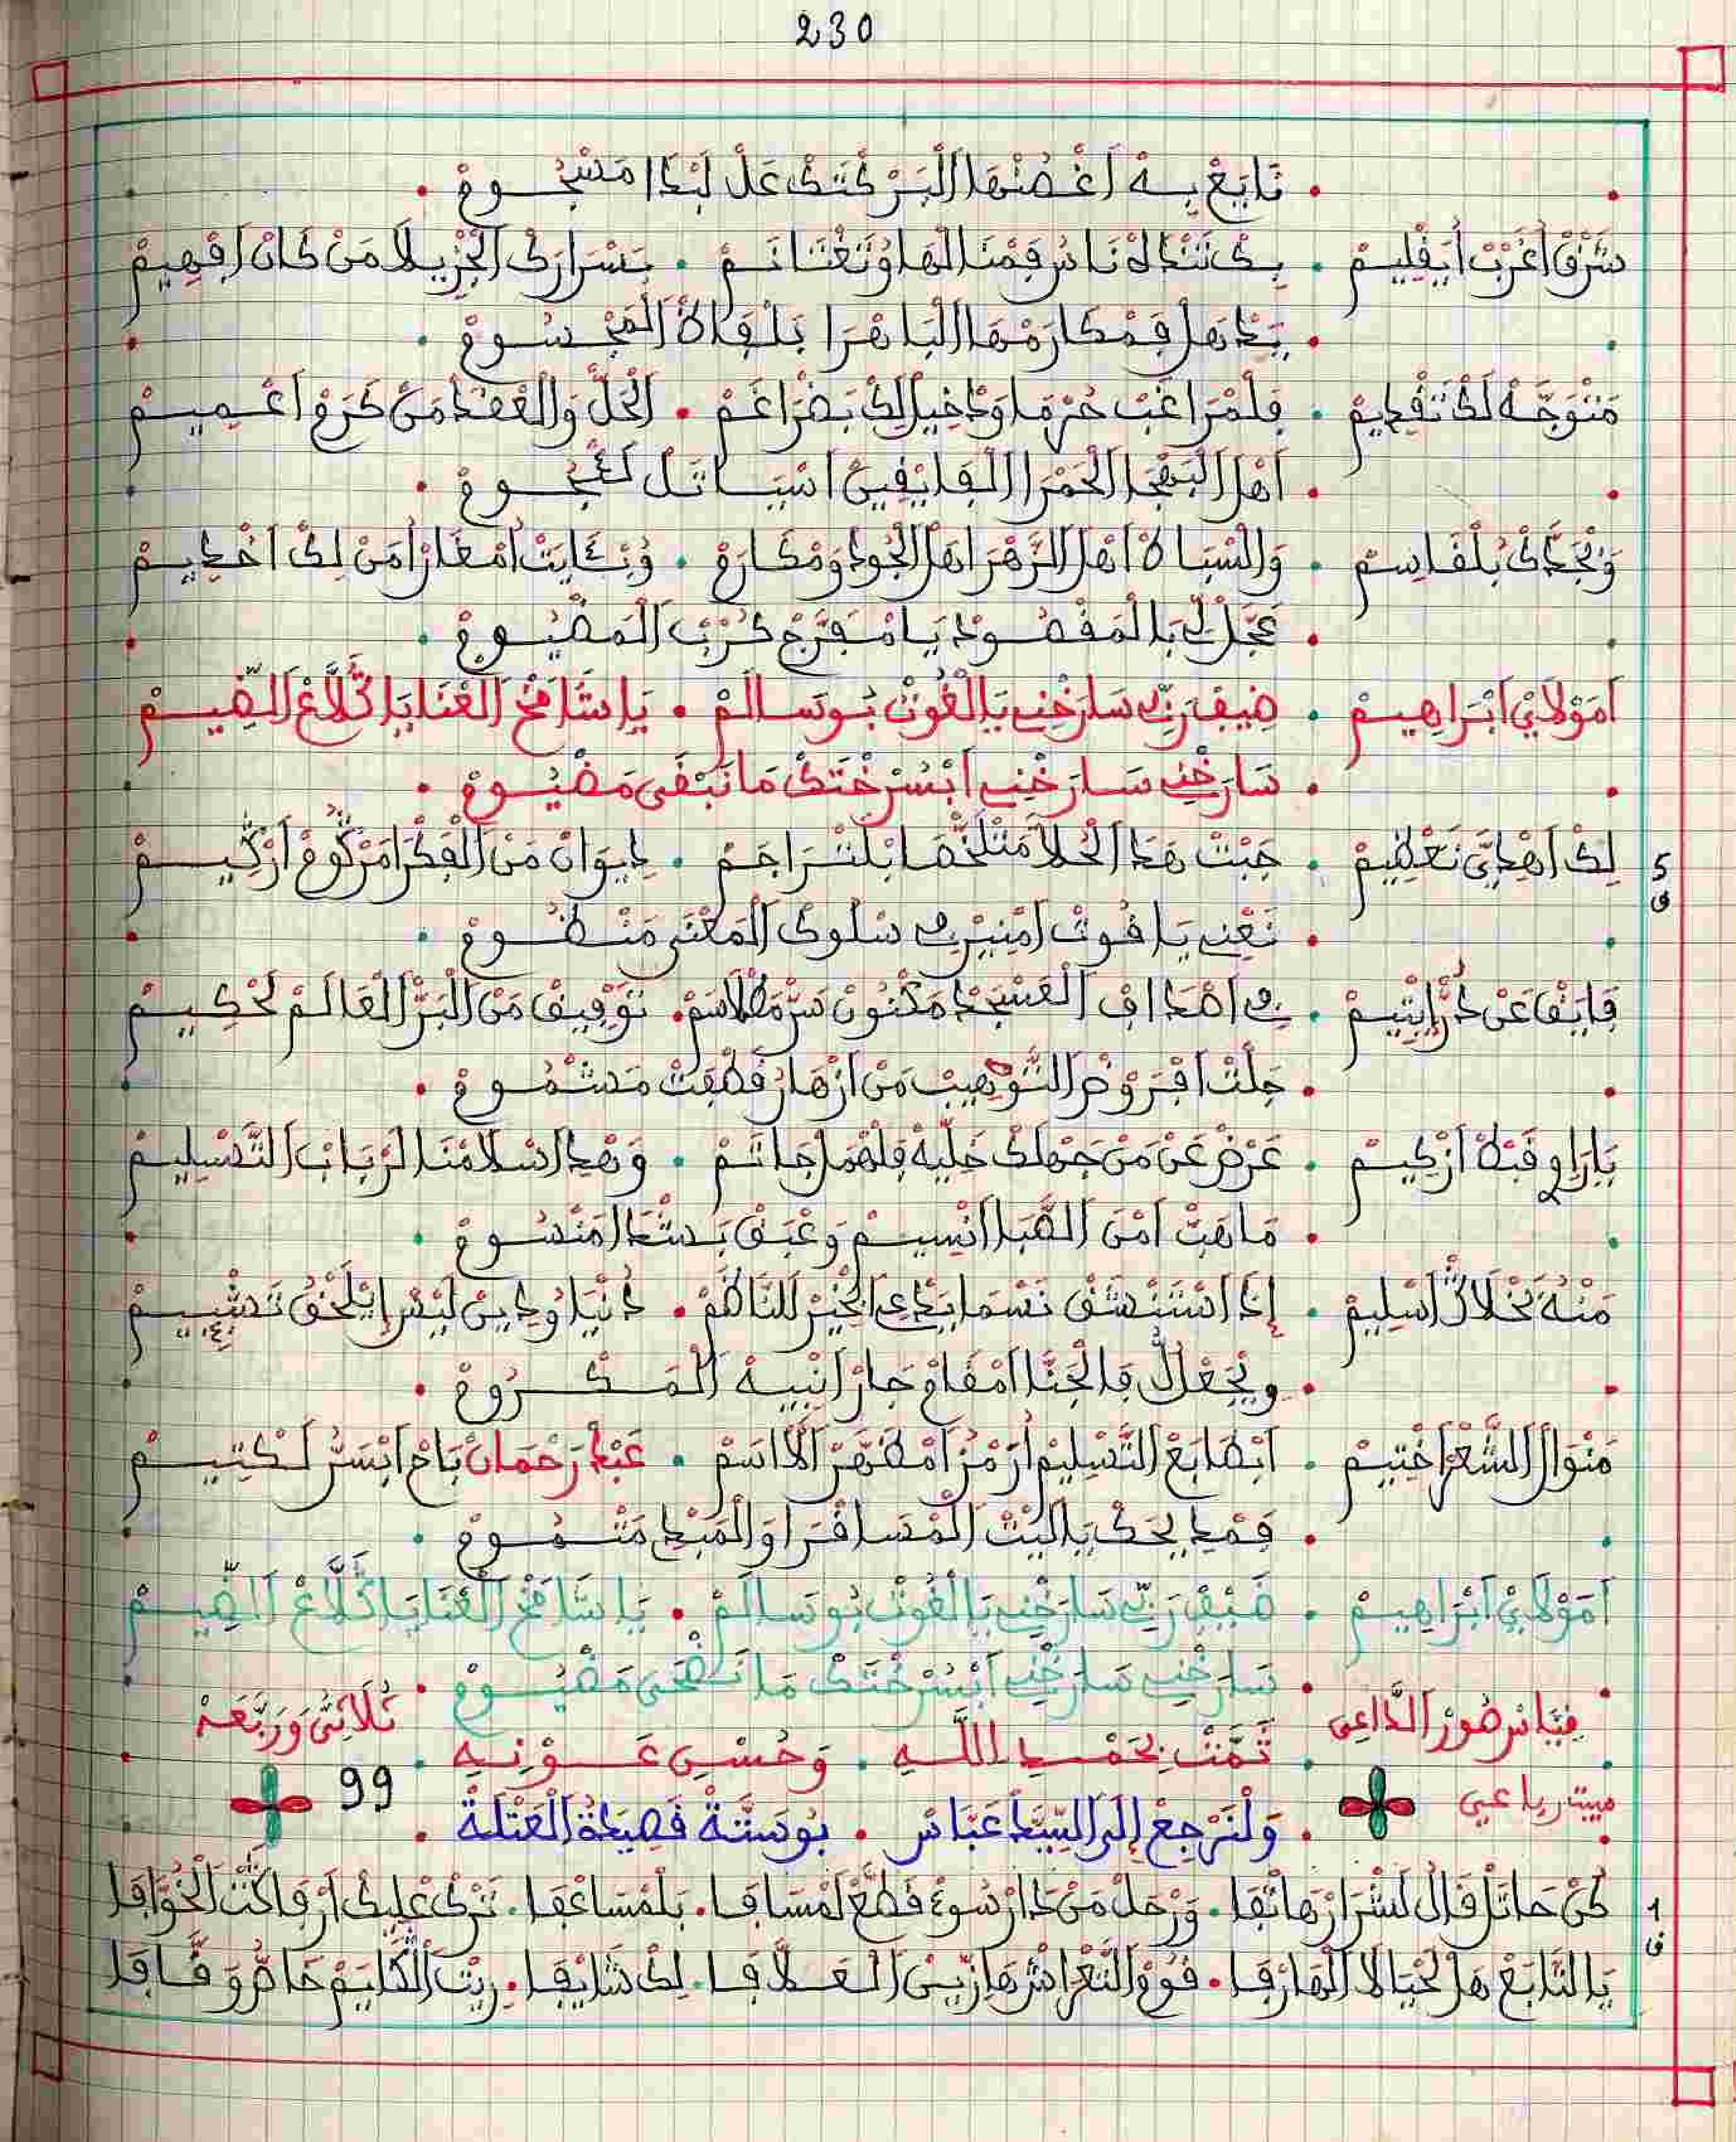 230
تَابَعْ بِهْ أَغْصُنْهَا الْبَرْكْتَكْ عَلْ لَبْدَا مَسْجُومْ
شَرْقْ أَغَرْبْ أَبَقْلِيمْ . بِكْ تَنْدَاهْ نَاسْ قِمْنَا لْهَا وُتَغْنَانَمْ . بَسْرَارَكْ الْجْزِيلَا مَنْ كَانْ افْهِيمْ
بِيَدْهَلْ فَمْكَارَمْهَا الْبَاهْرَا بَلْفَاهْ الْمَجْسُومْ
مَتْوَجَّهْ لَكْ تَقْدِيمْ . فَلْمْرَاغَبْ حُرْمَا وَدْخِيلْ لِكْ بَضْرَاغَمْ . الْحَلْ وَالْعَقْدْ مَنْ كَرَمْ اعْمِيمْ
اهْلْ الْبَهْجَا الْحَمْرَا الْفَايْقِينْ اسْبَاتَلْ لَعْجُومْ
وَبْجَدَّكْ بَلْقَاسِمْ . وَالْسْبَاهْ اهْلْ الزَّهْرَا اهْلْ الْجُودْ وَمْكَارَمْ . وُبْعَايَتْ امْغَارْ امَنْ لِكْ اخْدِيمْ
عَجَّلْ لِي بَالْمَقْصُودْ يَا مْفَرَّجْ كُرْبْ الْمَضْيُومْ
أَمَوْلَايْ ابْرَاهِيمْ . ضِيفْ رَبِّي سَارَخْنِي يَا الْغُوتْ بُوسَالَمْ . يَا شَامَخْ الْعْنَايَا يَا تَلَّاعْ الضِّيمْ
سَارَخْنِي سَارَخْنِي ابْسُرْخْتَكْ مَا نَبْقَى مَضْيُومْ
5
ق
لِكْ اهْدِيَّ تَعْظِيمْ . جَبْتْ هَدْ الْحُلَّا مَنْتَلْخَّصَا بْلَتْرَاجَمْ . دِيوَانْ مَنْ الْفِكْرَا مَرْكُومْ ارْكِيمْ
نَعْنِي يَاقُوتْ امْنِيرْ فِي سْلُوكْ الْمَعْنَى مَنْظُومْ
فَايَقْ عَنْ دُرّْ ايْتِيمْ . فِي اصْدَافْ الْعَسْجَدْ مَكْنُونْ سَرّْ مْطَلْاسَمْ . تَوْفِيقْ مَنْ الْبَرّْ الْعَالَمْ لَحْكِيمْ
جَلْتْ افْرُوضْ التَّوْهِيبْ مَنْ ازْهَارْ قْطَفْتْ مَشْمُومْ
يَا رَاوِي قَبْلَهْ ازْكِيمْ . عَرْضْ عَنْ مَنْ جَهْلَكْ خَلِّيهْ فَلْهْمَا جَاتَمْ . وَهْدِي سْلَامْنَا لَرْبَابْ التَّسْلِيمْ
مَا هَبّْ امْنَ الصَّبَا انْسِيمْ وَعْبَقْ بَشْدَا مَنْسُومْ
مَنُّهْ بَخْلَالُ اسْلِيمْ . إِذَا اسْتَنْشَقْ نَسْمَا يَدْعِي الْخِيرْ لَلنَّاظَمْ . دُنْيَا وُدِينْ لِيسْ ايْلَحْقُ تَشْئِيمْ
وِيجْعَلْ لُ فَالْجَنَّا امْقَامْ جَارْ انْبِيهْ الْمَكْرُومْ
مَنْوَالْ الشّْعْرْ اخْتِيمْ . ابْطَابَعْ التَّسْلِيمْ أُرَمْزْ امْطَهَّرْ الَاسَمْ . عَبْدْ رَحْمَانْ بَاحْ ابْسَرّْ لَكْتِيمْ
فَمْدِيحَكْ يَا لِيتْ الْمْسَافْرَا وَالْمَبْدِي مَتْمُومْ
أَمَوْلَايْ ابْرَاهِيمْ . ضَيْفْ رَبِّي سَارَخْنِي يَا الْغُوتْ بُوسَالَمْ . يَا شَامَخْ الْعْنَايَا يَا تَلَّاعْ الضِّيمْ
سَارَخْنِي سَارَخْنِي ابْسُرْخْتَكْ مَا نَضْحَى مَضْيُومْ
فِيَاسْ طُورْ الدَّاعِي . تَمَّتْ بِحَمْدِ اللَّهِ . وَحُسْنِ عَوْنِهِ . ثُلَاثِي وَرَبَّعَهْ
مبيت رباعي . وَلْنَرْجِعْ إِلَى السِّيدْ عَبَّاسْ . بُوسَتَّةْ قَصِيدَةُ الْعَتْلَةْ . 99
1
ق
كُنْ حَاتَلْ قَالْ لَشْرَارْ هَاتْقَا . وَرْحَلْ مَنْ دَارْ سُوءْ قَطَّعْ لَمْسَافَا . بَلْمْسَاعْفَا . تَرْكْ عْلِيكْ ارْفَاكْتْ الْخْوَافَا
يَا التَّابَعْ هَلْ لَحْيَا لَا الْهَارْفَا . قُومْ التَّغْرَاسْ هَا زِينْ الْعَلَّافَا . لِكْ شَايْقَا . رِيتْ الْكْلِيمْ حَاضْرْ وَقَّافَا